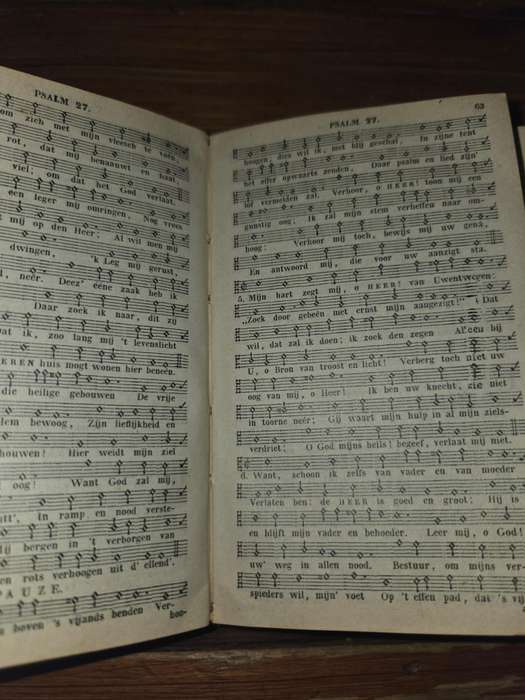 PSALM 27.
om zich met mijn vleesch te voên,
rot, dat mij benaauwt en haat
viel, om dat het God verlaat.
een leger mij omringen, Nog vrees
t mij op den Heer: Al wil men mij
dwingen, 'k Leg mij gerust,
neêr. Deez' eéne zaak heb ik
Daar zoek ik naar, dit zij
at ik, zoo lang mij 't levenslicht
EREN huis mogt wonen hier beneên.
die heilige gebouwen De vrije
bewoog, Zijn lieflijkheid en
houwen! Hier weidt mijn ziel
oog! Want God zal mij,
In ramp en nood verste-
ij bergen in 't verborgen van
en rots verhoogen uit d' ellend'.
PAUZE.
boven 's vijands benden Ver-
hoo-
PSALM 27.
63
hoogen, dies wil ik, met blij geschal, In zijne tent
het offer opwaarts zenden. Daar psalm en lied zijn
lof vermelden zal. Verhoor, o HEER! toon mij een
gunstig oog; Ik zal mijn stem verheffen naar om-
hoog: Verhoor mij toch, bewijs mij uw genâ,
En antwoord mij, die voor uw aanzigt sta.
5. Mijn hart zegt mij, o HEER! van Uwentwegen:
„Zoek door gebeên met ernst mijn aangezigt!" Dat
wil, dat zal ik doen; ik zoek den zegen Alleen bij
U, o Bron van troost en licht! Verberg toch niet uw
oog van mij, o Heer! Ik ben uw knecht, zie niet
in toorne neêr; Gij waart mijn hulp in al mijn ziels-
verdriet; O God mijns heils! begeef, verlaat mij niet.
6. Want, schoon ik zelfs van vader en van moeder
Verlaten ben: de HEER is goed en groot; Hij is
en blijft mijn vader en behoeder. Leer mij, o God!
uw' weg in allen nood. Bestuur, om mijns ver-
spieders wil, mijn' voet Op 't effen pad, das 's vij